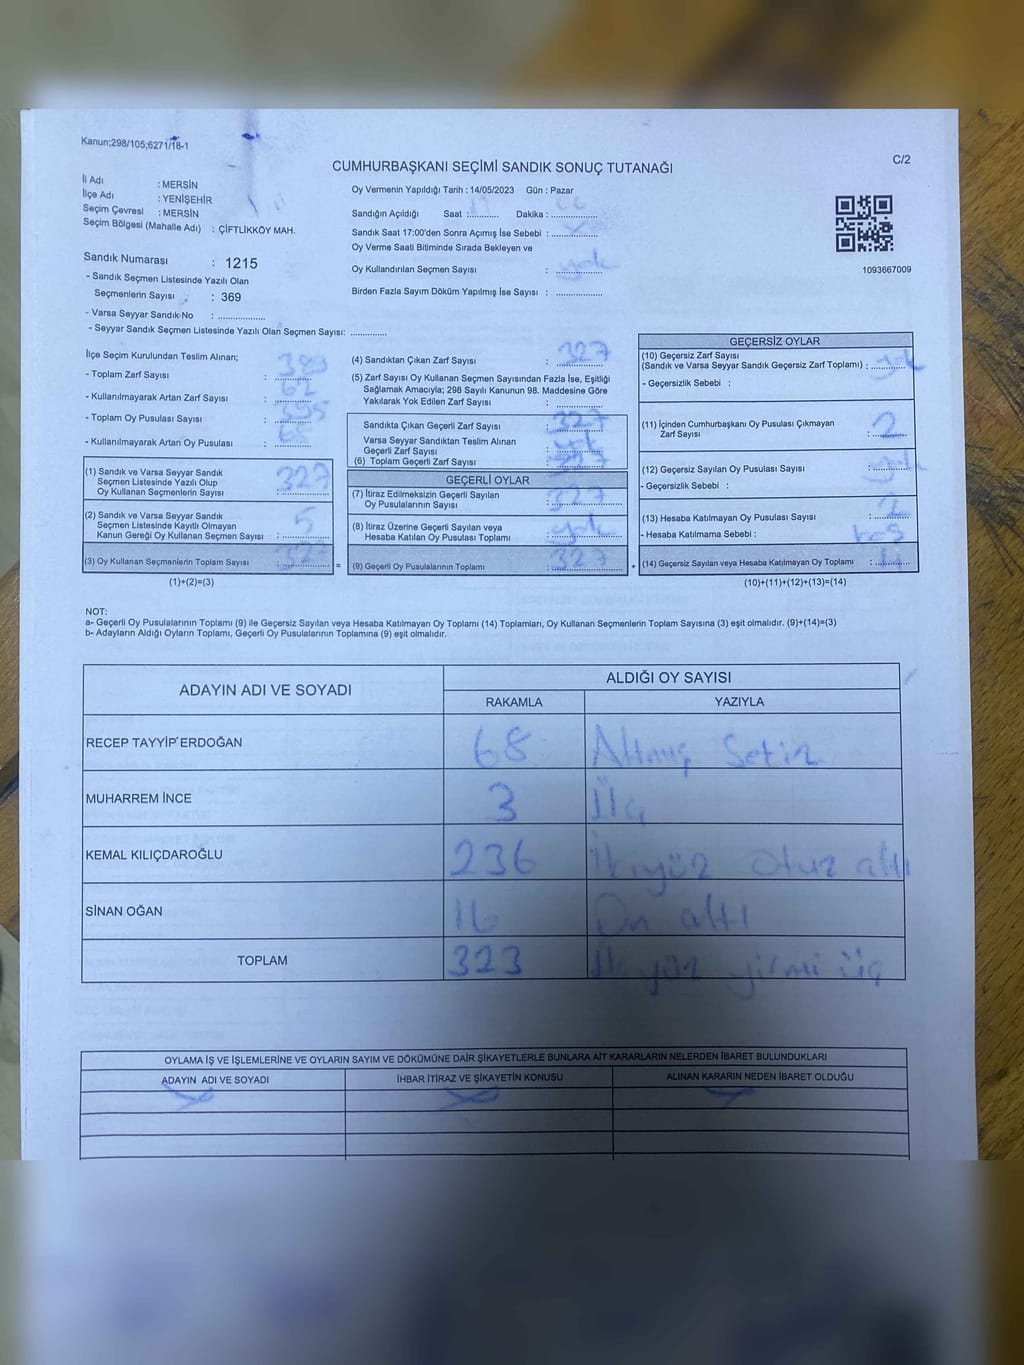 Kanun;298/105;6271/18-1
C/2
CUMHURBAŞKANI SEÇİMİ SANDIK SONUÇ TUTANAĞI
İl Adı : MERSİN
İlçe Adı : YENİŞEHİR
Seçim Çevresi : MERSİN
Seçim Bölgesi (Mahalle Adı) : ÇİFTLİKKÖY MAH.
Oy Vermenin Yapıldığı Tarih : 14/05/2023 Gün : Pazar
Sandığın Açıldığı Saat :........... Dakika : .................
Sandık Saat 17:00'den Sonra Açımış İse Sebebi : .................
Oy Verme Saati Bitiminde Sırada Bekleyen ve
Oy Kullandırılan Seçmen Sayısı : yok
Birden Fazla Sayım Döküm Yapılmış İse Sayısı : .................
1093667009
Sandık Numarası : 1215
- Sandık Seçmen Listesinde Yazılı Olan
Seçmenlerin Sayısı : 369
- Varsa Seyyar Sandık No : .................
- Seyyar Sandık Seçmen Listesinde Yazılı Olan Seçmen Sayısı: .............
İlçe Seçim Kurulundan Teslim Alınan;
- Toplam Zarf Sayısı :
- Kullanılmayarak Artan Zarf Sayısı :
- Toplam Oy Pusulası Sayısı :
- Kullanılmayarak Artan Oy Pusulası :
(1) Sandık ve Varsa Seyyar Sandık
Seçmen Listesinde Yazılı Olup
Oy Kullanan Seçmenlerin Sayısı : 327
(2) Sandık ve Varsa Seyyar Sandık
Seçmen Listesinde Kayıtlı Olmayan
Kanun Gereği Oy Kullanan Seçmen Sayısı : 5
(3) Oy Kullanan Seçmenlerin Toplam Sayısı :
(1)+(2)=(3)
(4) Sandıktan Çıkan Zarf Sayısı : 327
(5) Zarf Sayısı Oy Kullanan Seçmen Sayısından Fazla İse, Eşitliği
Sağlamak Amacıyla; 298 Sayılı Kanunun 98. Maddesine Göre
Yakılarak Yok Edilen Zarf Sayısı : .................
Sandıkta Çıkan Geçerli Zarf Sayısı : 327
Varsa Seyyar Sandıktan Teslim Alınan
Geçerli Zarf Sayısı : yok
(6) Toplam Geçerli Zarf Sayısı :
GEÇERLİ OYLAR
(7) İtiraz Edilmeksizin Geçerli Sayılan
Oy Pusulalarının Sayısı : 327
(8) İtiraz Üzerine Geçerli Sayılan veya
Hesaba Katılan Oy Pusulası Toplamı : yok
= (9) Geçerli Oy Pusulalarının Toplamı : 327 +
GEÇERSİZ OYLAR
(10) Geçersiz Zarf Sayısı
(Sandık ve Varsa Seyyar Sandık Geçersiz Zarf Toplamı) : yok
- Geçersizlik Sebebi :
(11) İçinden Cumhurbaşkanı Oy Pusulası Çıkmayan
Zarf Sayısı : 2
(12) Geçersiz Sayılan Oy Pusulası Sayısı : yok
- Geçersizlik Sebebi :
(13) Hesaba Katılmayan Oy Pusulası Sayısı : 2
- Hesaba Katılmama Sebebi : boş
(14) Geçersiz Sayılan veya Hesaba Katılmayan Oy Toplamı : 4
(10)+(11)+(12)+(13)=(14)
NOT:
a- Geçerli Oy Pusulalarının Toplamı (9) ile Geçersiz Sayılan veya Hesaba Katılmayan Oy Toplamı (14) Toplamları, Oy Kullanan Seçmenlerin Toplam Sayısına (3) eşit olmalıdır. (9)+(14)=(3)
b- Adayların Aldığı Oyların Toplamı, Geçerli Oy Pusulalarının Toplamına (9) eşit olmalıdır.
ADAYIN ADI VE SOYADI ALDIĞI OY SAYISI
RAKAMLA YAZIYLA
RECEP TAYYİP ERDOĞAN 68 Altmış Sekiz
MUHARREM İNCE 3 Üç
KEMAL KILIÇDAROĞLU 236 İkiyüz Otuz altı
SİNAN OĞAN 16 On altı
TOPLAM 323 yüz yirmi üç
OYLAMA İŞ VE İŞLEMLERİNE VE OYLARIN SAYIM VE DÖKÜMÜNE DAİR ŞİKAYETLERLE BUNLARA AİT KARARLARIN NELERDEN İBARET BULUNDUKLARI
ADAYIN ADI VE SOYADI İHBAR İTİRAZ VE ŞİKAYETİN KONUSU ALINAN KARARIN NEDEN İBARET OLDUĞU